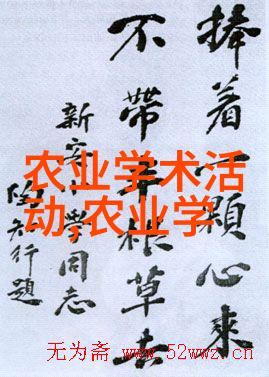 捧着一顆心來
不帶半根草去
新安小學同志
陶知行題
农业学术活
动-农业学
无为斋 www.52wwz.cn